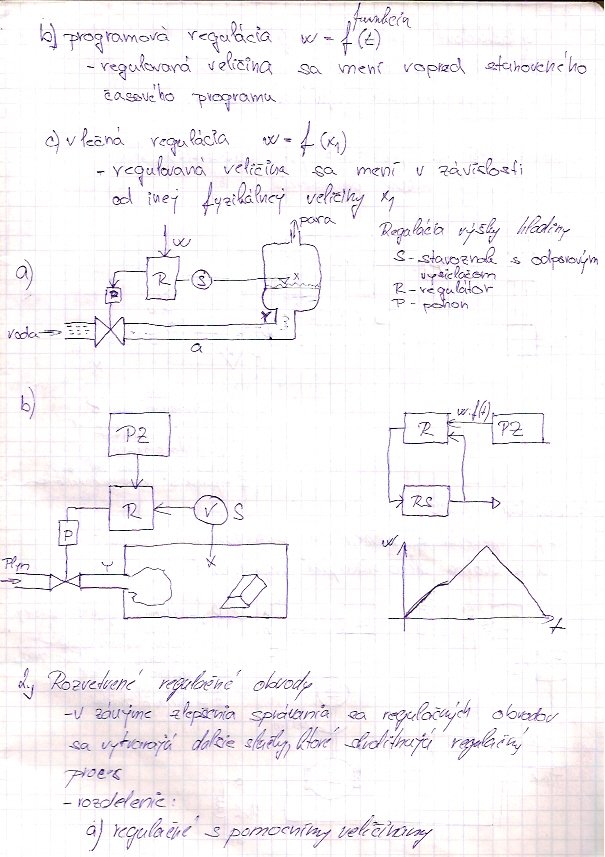 funkcia
b) programová regulácia w = f(t)
- regulovaná veličina sa mení vopred stanoveného
časového programu
c) vlečná regulácia w = f(x1)
- regulovaná veličina sa mení v závislosti
od inej fyzikálnej veličiny x1
para
Regulácia výšky hladiny
S - stavoznak s odporovým
vysielačom
R - regulátor
P - pohon
a)
w
R
S
x
P
Y
voda
a
b)
PZ
R
V
S
P
Plyn
Y
x
R
w=f(t)
PZ
RS
w
t
2.) Rozvetvené regulačné obvody
- v záujme zlepšenia správania sa regulačných obvodov
sa vytvárajú dalšie slučky, ktoré skvalitňujú regulačný
proces
- rozdelenie:
a) regulačné s pomocnými veličinami